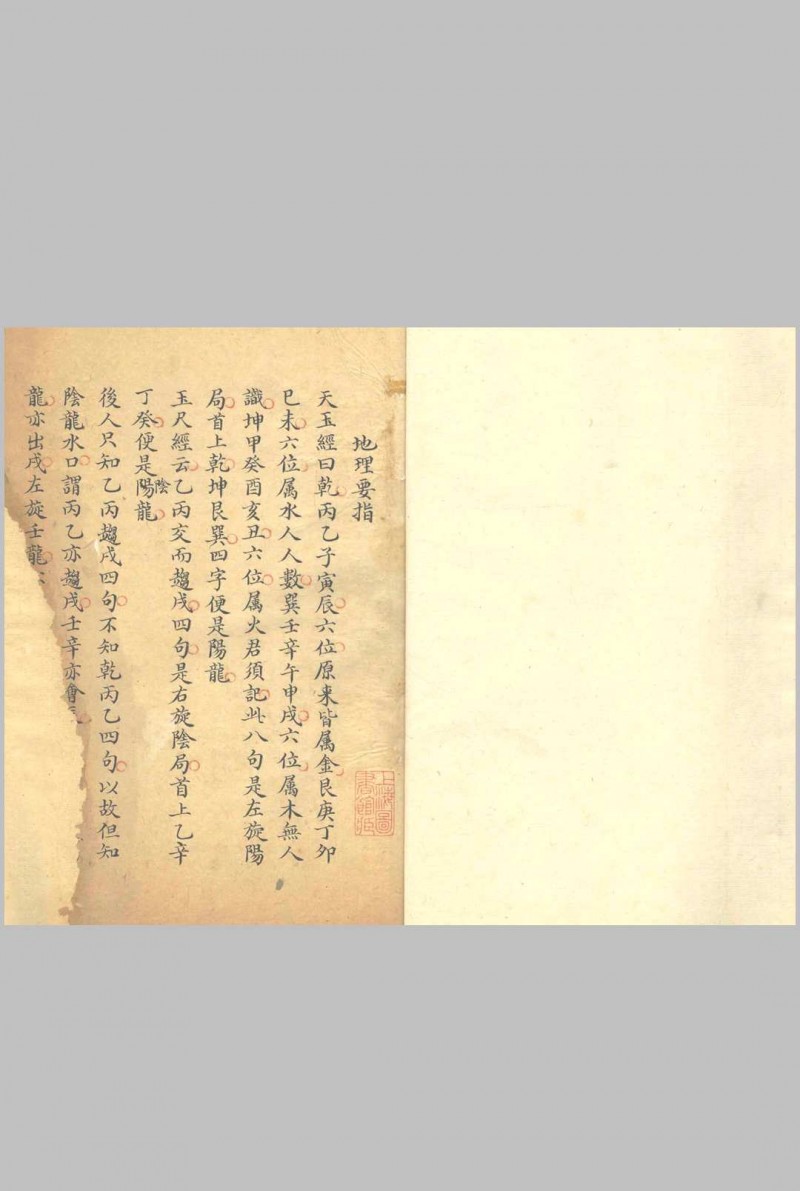 地理要指
天玉經曰乾丙乙子寅辰六位原来皆属金艮庚丁卯
巳未六位属水人人數巽壬辛午申戌六位属木無人
識坤甲癸酉亥丑六位属火君須記此八句是左旋陽
局首上乾坤艮巽四字便是陽龍
玉尺經云乙丙交而趨戌四句是右旋陰局首上乙辛
丁癸便是陽陰龍
後人只知乙丙趨戌四句不知乾丙乙四句以故但知
陰龍水口謂丙乙亦趨戌壬辛亦會
龍亦出戌左旋壬龍
上海圖書館藏